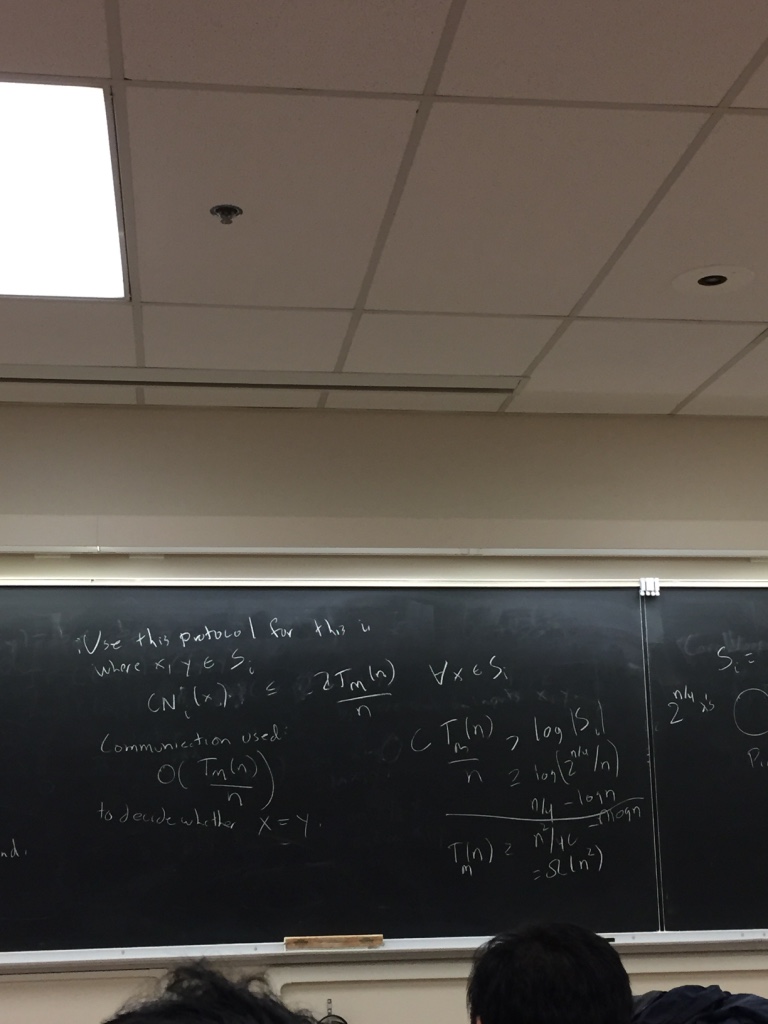 Use this protocol for this i
where x, y ∈ S_i
CN_i(x) ≤ 2T_m(n)/n ∀x ∈ S_i
Communication used:
O(T_m(n)/n)
to decide whether x = y.
nd.
C T_m(n)/n ≥ log|S_i|
≥ log(2^{n/4}/n)
n/4 - log n
T_m(n) ≥ n²/4c - n log n
= Ω(n²)
S_i =
2^{n/4} x's